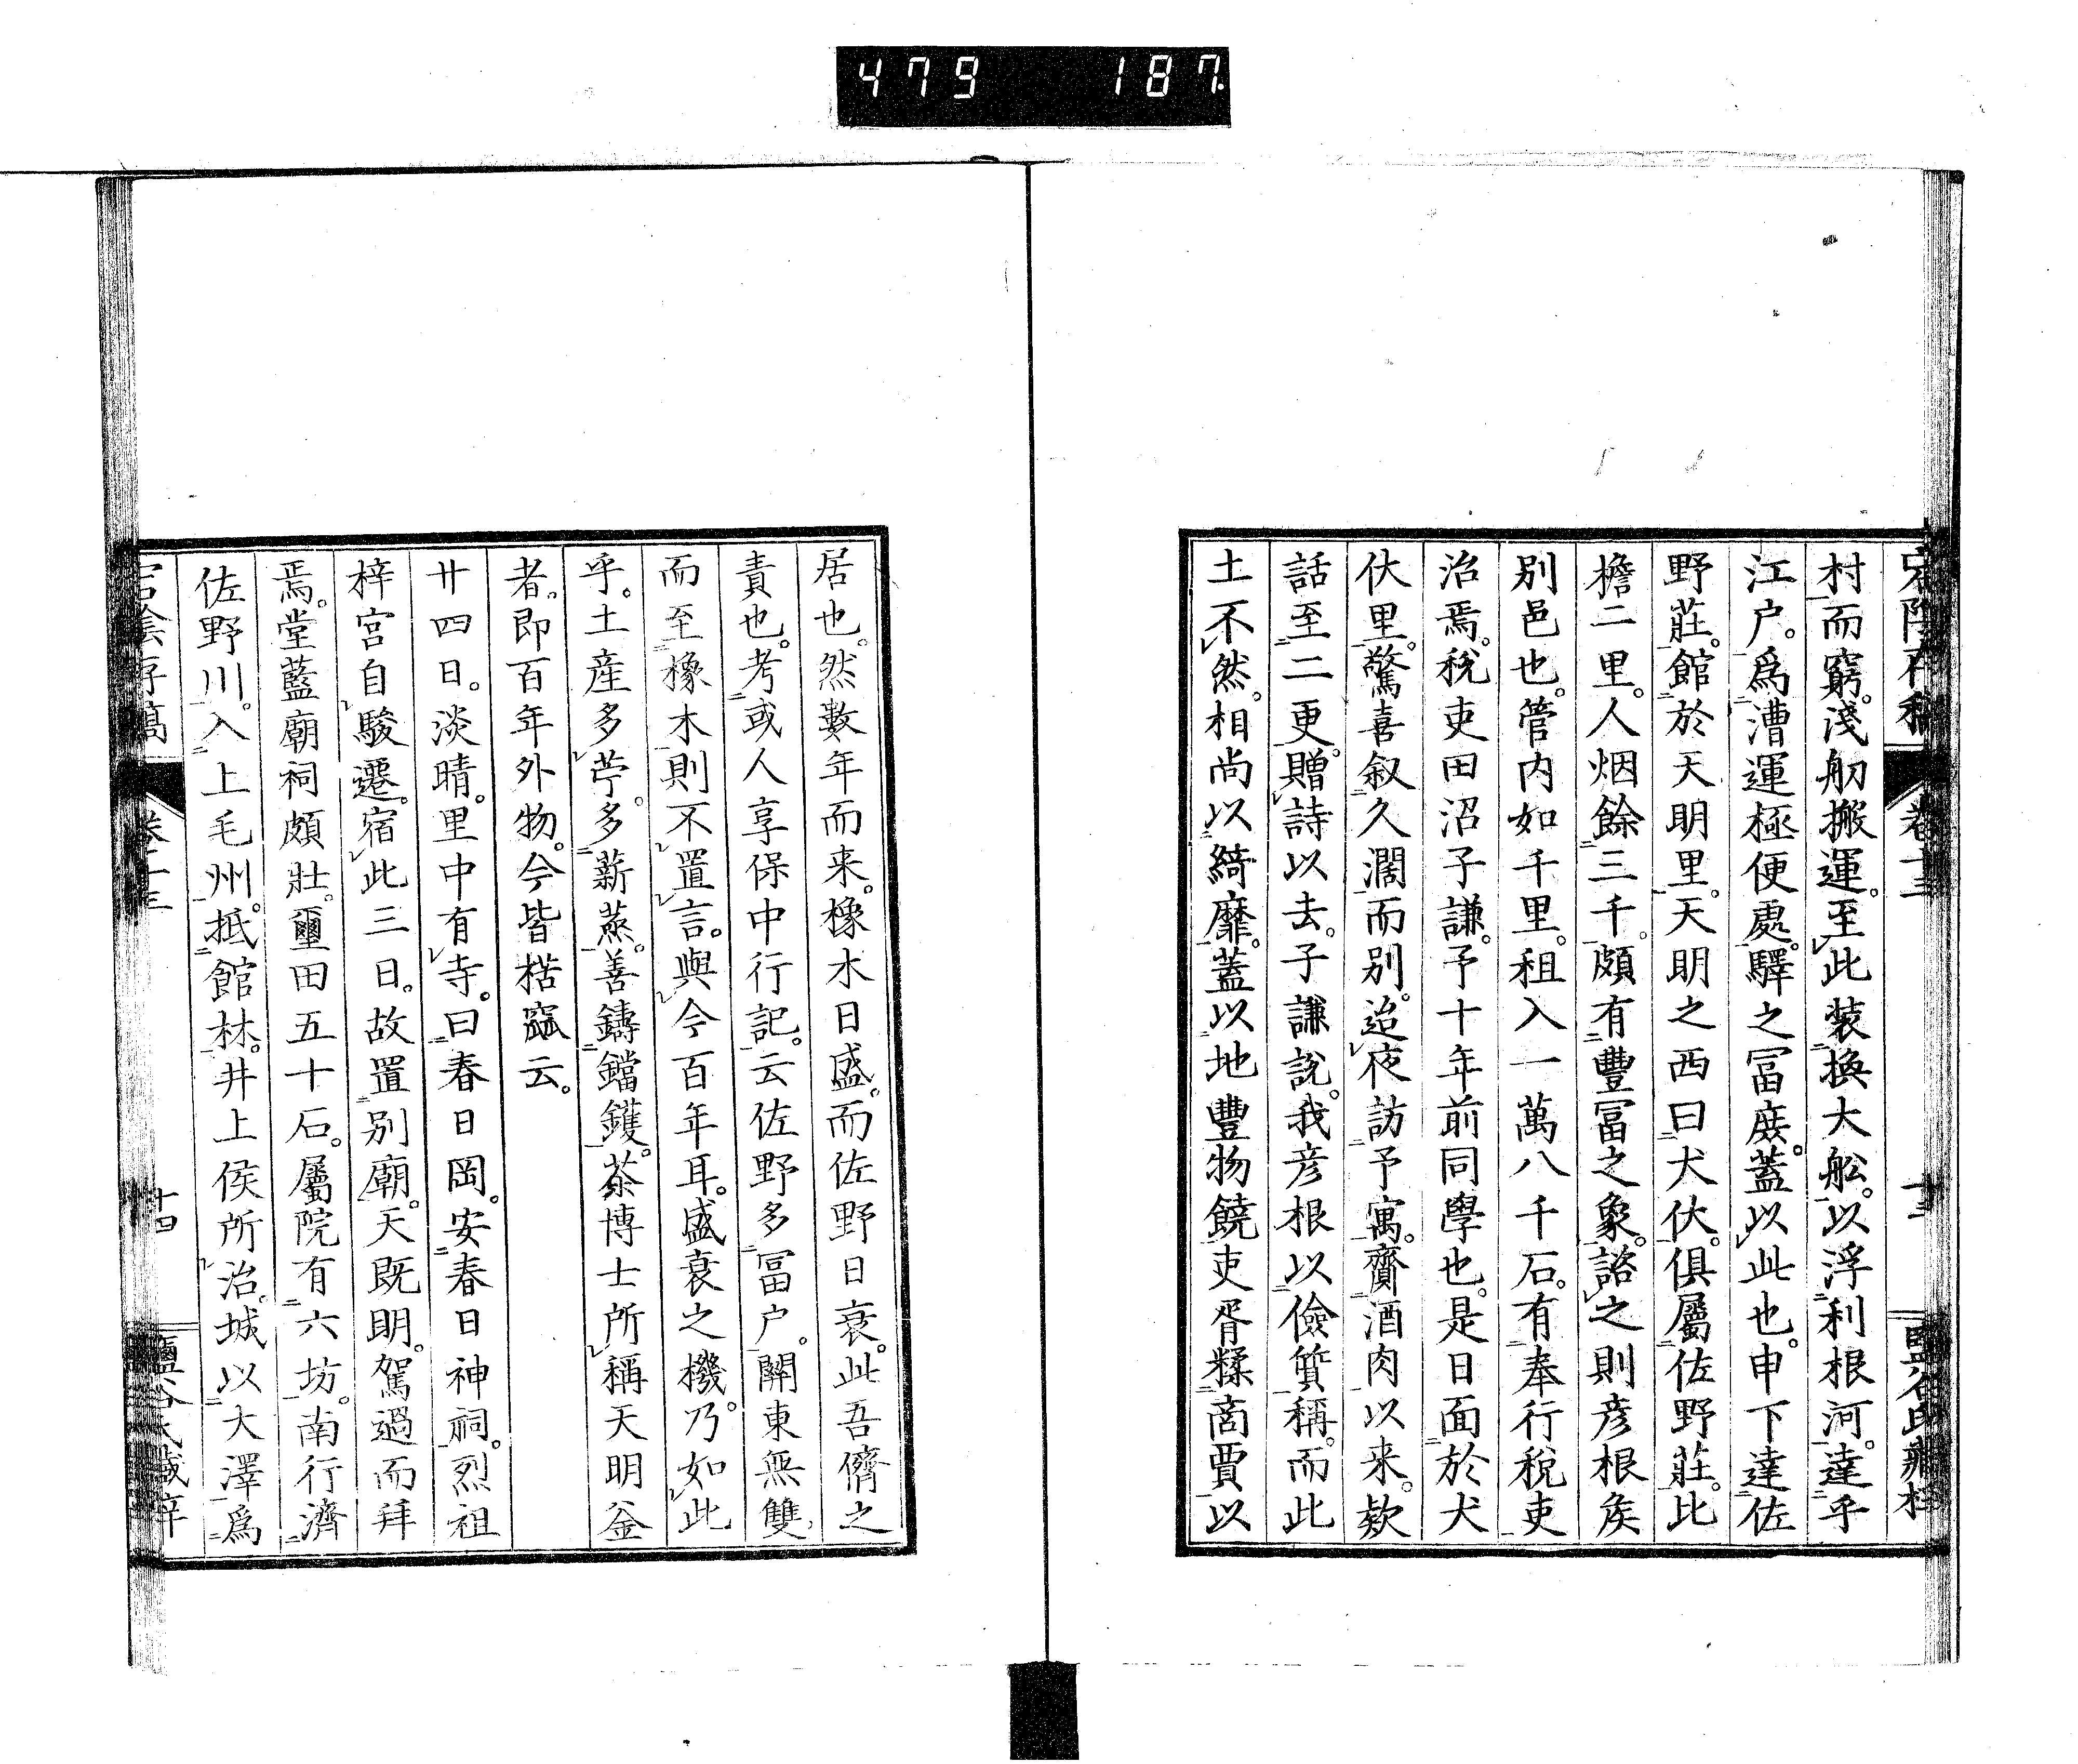 479 187.
宕陰存稿 卷十三 十三 鹽谷氏藏梓
村而窮。淺舠搬運。至此裝換大舩。以浮利根河。達乎
江户。爲漕運極便處。驛之冨庶。蓋以此也。申下達佐
野莊。館於天明里。天明之西曰犬伏。俱屬佐野莊。比
檐二里。人烟餘三千。頗有豐冨之象。諮之則彦根矦
別邑也。管内如千里。租入一萬八千石。有奉行税吏
治焉。税吏田沼子謙。予十年前同學也。是日面於犬
伏里。驚喜叙久濶而別。迨夜訪予寓。齎酒肉以来。欸
話至二更。贈詩以去。子謙說。我彦根以儉質稱。而此
土不然。相尚以綺靡。蓋以地豐物饒吏胥糅商賈以
居也。然數年而来。橡木日盛。而佐野日衰。此吾儕之
責也。考或人享保中行記。云佐野多冨户。關東無雙
而至橡木則不置言。與今百年耳。盛衰之機。乃如此
乎。土産多苧。多薪蒸。善鑄鐺鑊。茶博士所稱天明釜
者。即百年外物。今皆楛窳云。
廿四日。淡晴。里中有寺。曰春日岡。安春日神祠。烈祖
梓宮自駿遷。宿此三日。故置別廟。天既明。駕過而拜
焉。堂藍廟祠頗壯。璽田五十石。屬院有六坊。南行濟
佐野川。入上毛州。抵館林。井上侯所治。城以大澤爲
宕陰存稿 卷十三 十四 鹽谷氏藏梓